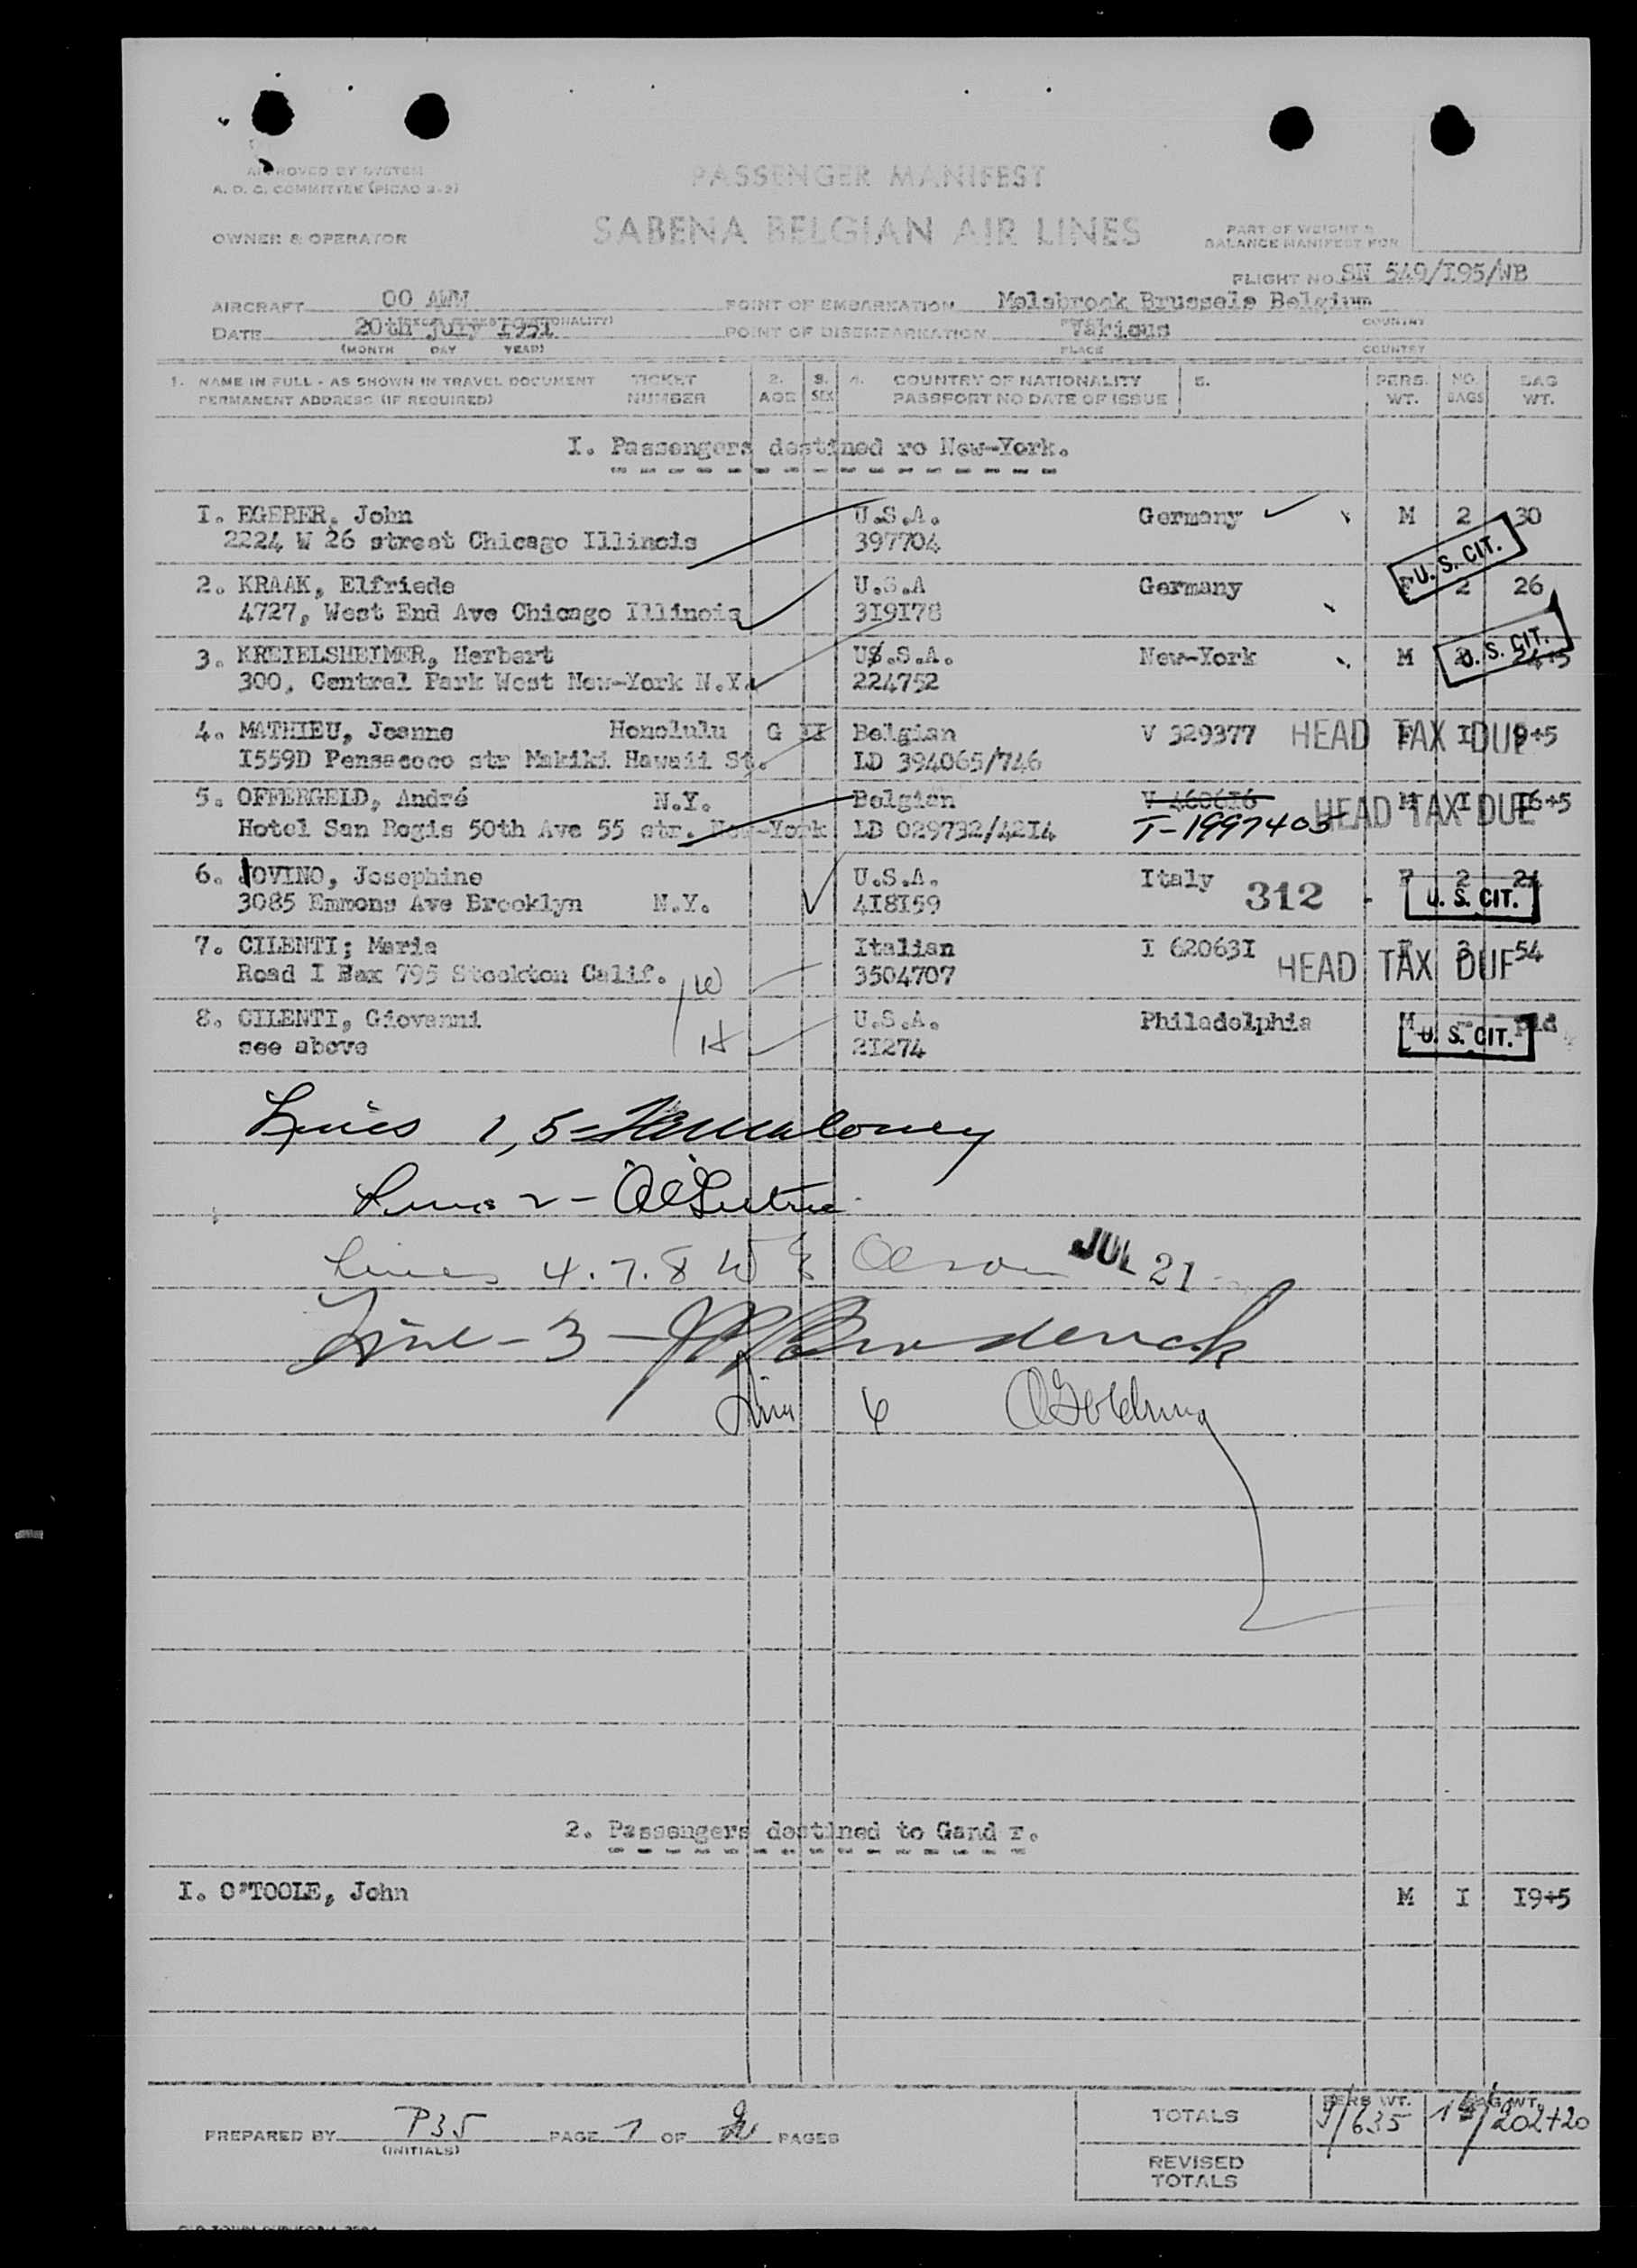 APPROVED BY SYSTEM
A. D. C. COMMITTEE (PICAO 2-2)
PASSENGER MANIFEST
SABENA BELGIAN AIR LINES
OWNER & OPERATOR
PART OF WEIGHT &
BALANCE MANIFEST FOR
FLIGHT NO. SN 549/I95/WB
AIRCRAFT OO AWM POINT OF EMBARKATION Melsbroek Brussels Belgium
DATE 20th July 1951 POINT OF DISEMBARKATION Various
(MONTH DAY YEAR) PLACE COUNTRY
1. NAME IN FULL - AS SHOWN IN TRAVEL DOCUMENT TICKET 2. 3. 4. COUNTRY OF NATIONALITY 5. PERS. NO. BAG
PERMANENT ADDRESS (IF REQUIRED) NUMBER AGE SEX PASSPORT NO DATE OF ISSUE WT. BAGS WT.
I. Passengers destined ro New-York.
I. EGERER, John U.S.A. Germany M 2 30
2224 W 26 street Chicago Illinois 397704
U. S. CIT.
2. KRAAK, Elfriede U.S.A Germany F 2 26
4727, West End Ave Chicago Illinois 3I9I78
U. S. CIT.
3. KREIELSHEIMER, Herbert U$.S.A. New-York M 24+5
300, Central Park West New-York N.Y. 224752
4. MATHIEU, Jeanne Honolulu G II Belgian V 329377 HEAD TAX DUE F I 9+5
I559D Pensacoco str Makiki Hawaii St. LD 394065/746
5. OFFERGELD, André N.Y. Belgian V 460616 HEAD TAX DUE M I I6+5
Hotel San Regis 50th Ave 55 str. New-York LD 029732/42I4 T-1997405
6. IOVINO, Josephine U.S.A. Italy 312 F 2 24
3085 Emmons Ave Brooklyn N.Y. 4I8I59 U. S. CIT.
7. CILENTI; Maria Italian I 62063I HEAD TAX DUE F 54
Road I Bax 795 Stockton Calif. W 3504707
8. CILENTI, Giovanni U.S.A. Philadelphia M - pld
see above H 2I274 U. S. CIT.
Lines 1, 5 - Maloney
Lines 2 -
Lines 4. 7. 8 W E Olson JUL 21
Line - 3 - Broderick
Line 6 Goldring
2. Passengers destined to Gand r.
I. O'TOOLE, John M I I9+5
TOTALS PERS WT. BAG WT.
9/635 202+20
PREPARED BY P35 PAGE 1 OF 2 PAGES
(INITIALS)
REVISED
TOTALS